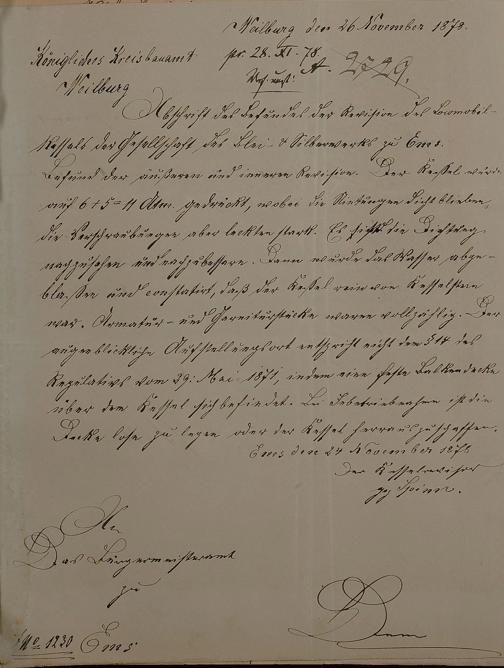 Weilburg den 26 November 1878.
Königliches Kreisbauamt
Weilburg
pr. 28. XI. 78.
A. 2729.
Abschrift des Befundes der Revision des Locomobil-
kessels der Gesellschaft des Blei- & Silberwerks zu Ems.
Befund der äußeren und inneren Revision. Der Kessel wurde
auf 6+5=11 Atm. gedrückt, wobei die Nietungen dicht blieben,
die Verschraubungen aber leckten stark. Es sind die Dichtung
nachzusehen und nachzubessern. Dann wurde das Wasser abge-
blasen und constatirt, daß der Kessel rein von Kesselstein
war. Armatur- und Garniturstücke waren vollzählig. Der
augenblickliche Aufstellungsort entspricht nicht dem § 14 des
Regulativs vom 29. Mai 1871, indem eine feste Balkendecke
über dem Kessel sich befindet. Bei Inbetriebnahme ist die
Decke lose zu legen oder der Kessel herauszuschaffen.
Ems den 24 November 1878
Der Kesselrevisor
gez
An
Das Bürgermeisteramt
zu
No. 1230 Ems